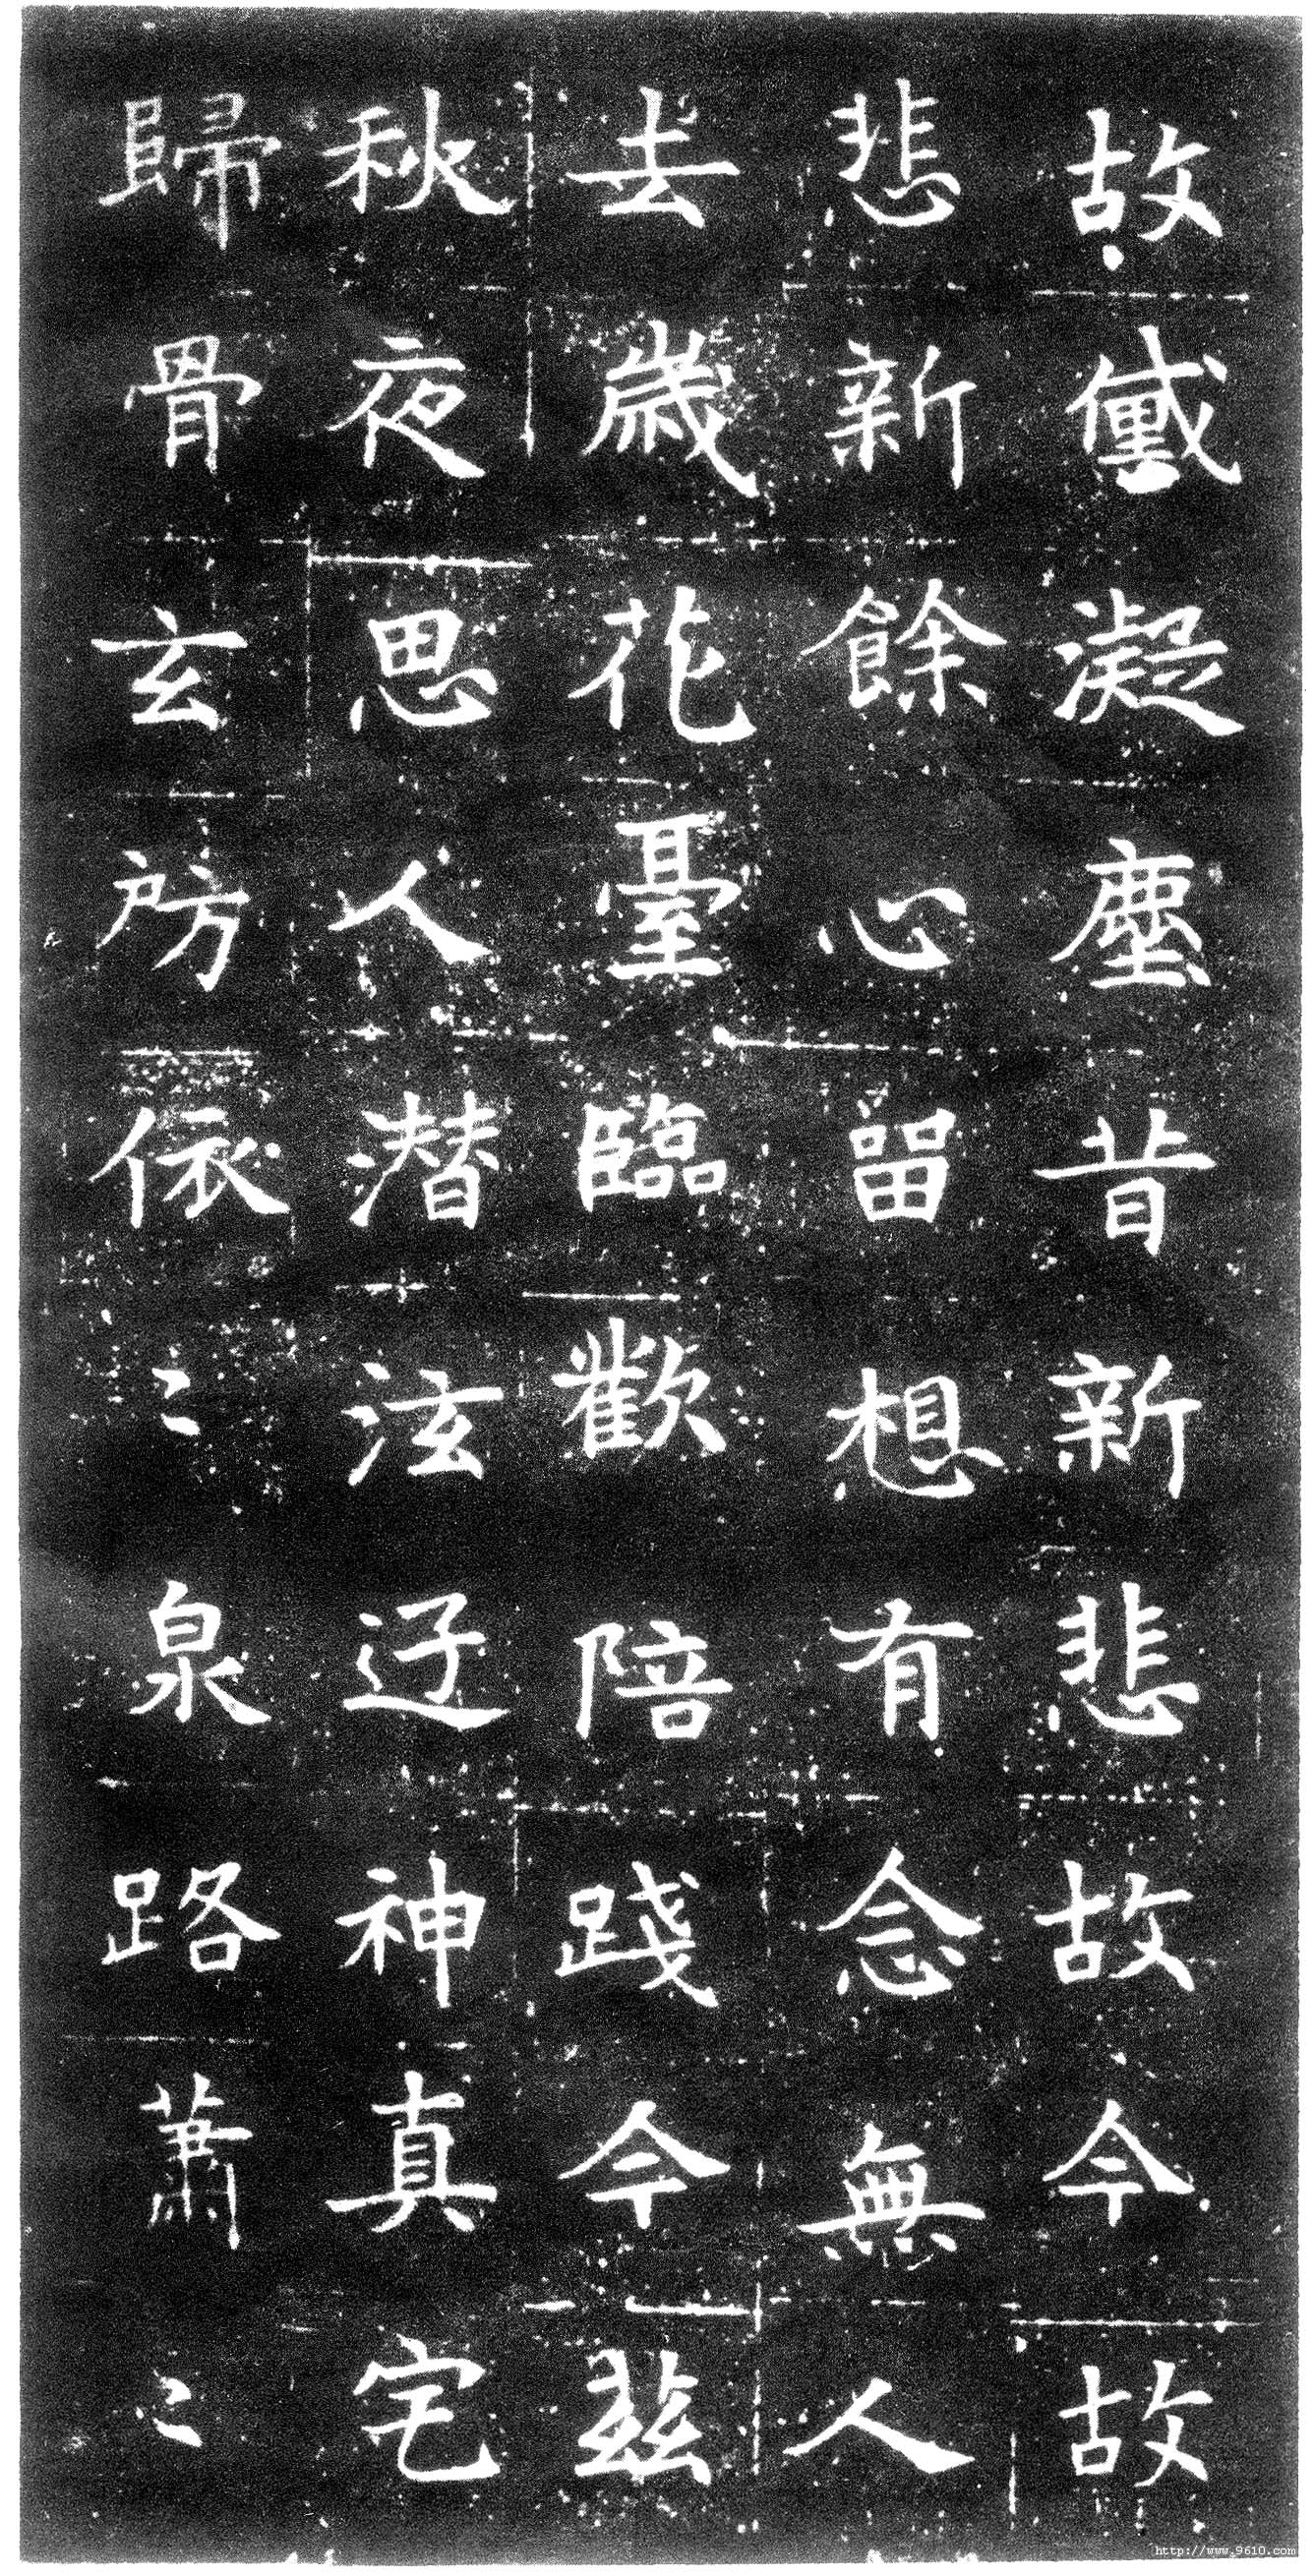 故儎凝塵昔新悲故今故
悲新餘心留想有念無人
去歲花臺臨歡陪踐今茲
秋夜思人潜泫迂神真宅
歸骨玄房依〻泉路蕭〻
http://www.9610.com